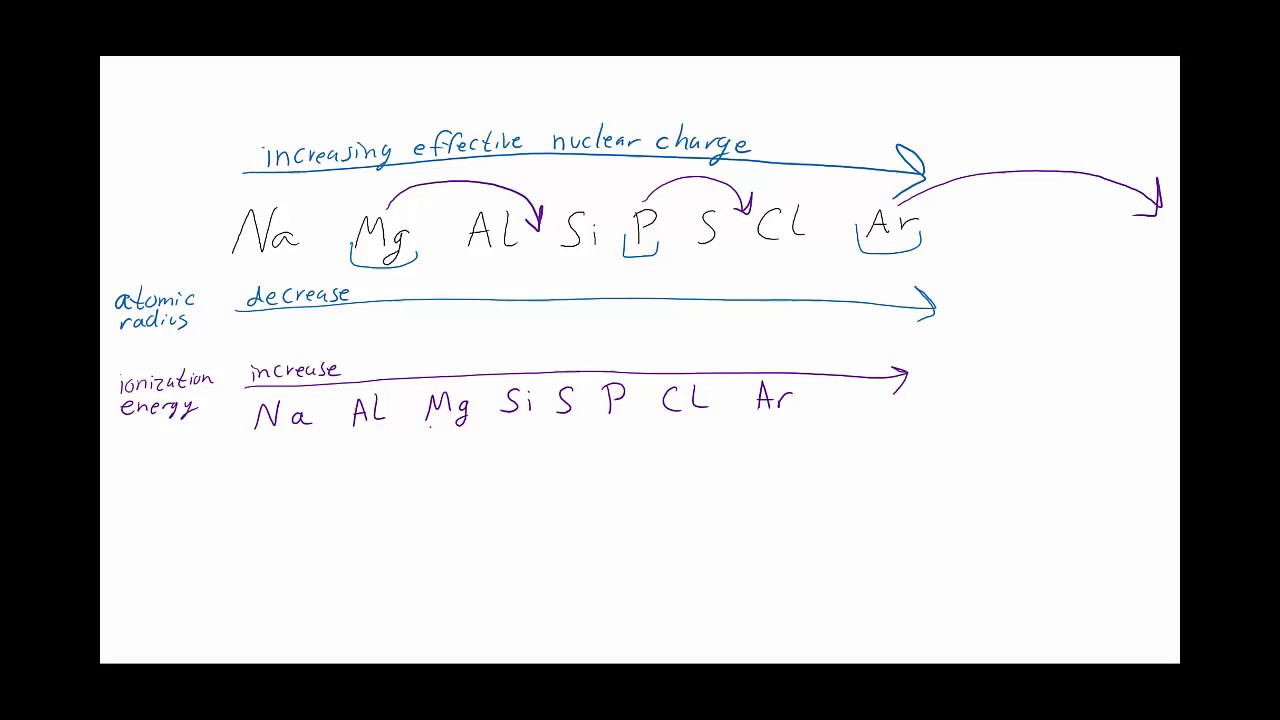 increasing effective nuclear charge
Na Mg Al Si P S Cl Ar
atomic radius decrease
ionization energy increase
Na Al Mg Si S P Cl Ar